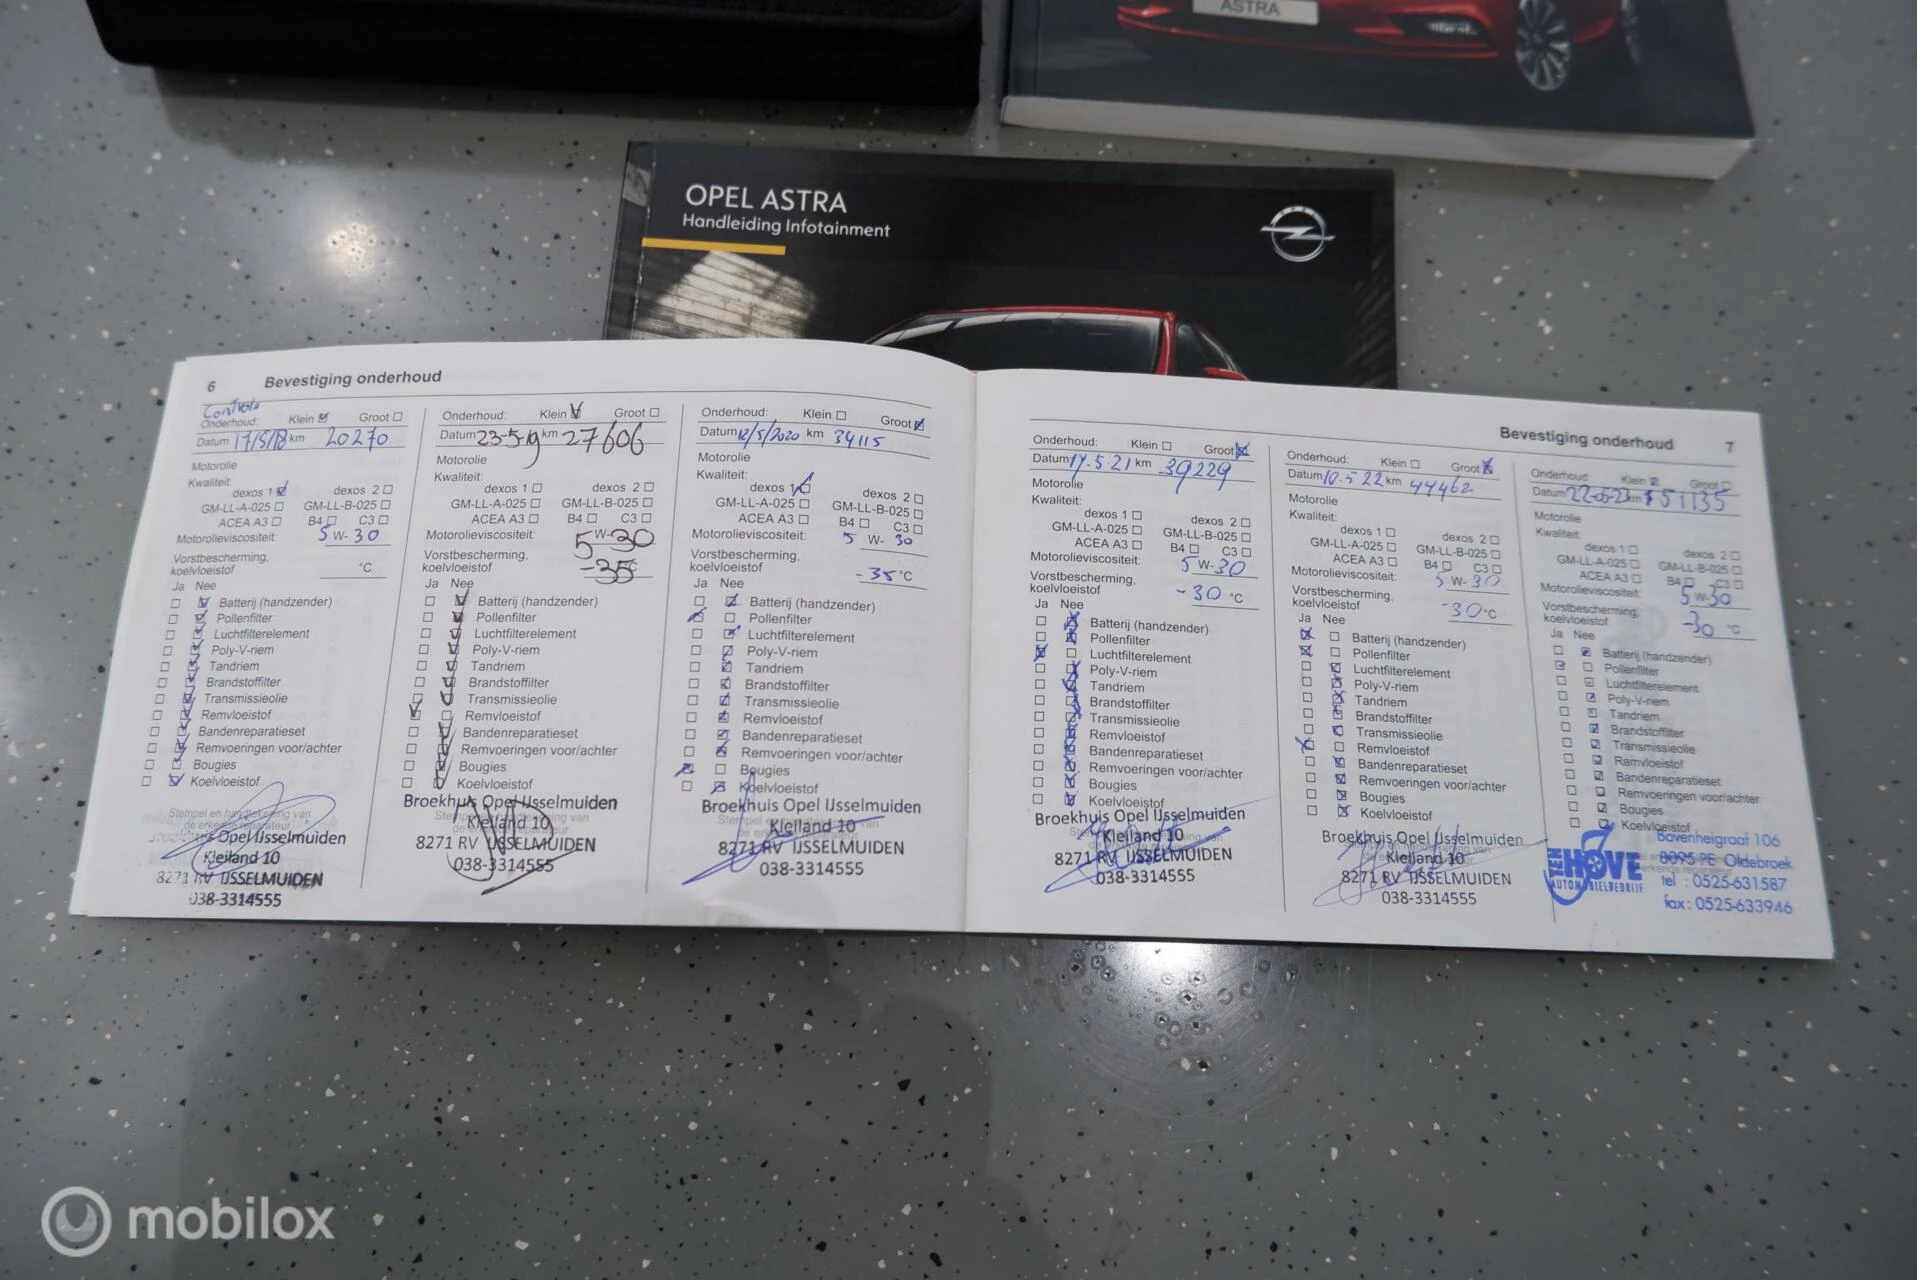 ASTRA
OPEL ASTRA
Handleiding Infotainment
OPEL
6 Bevestiging onderhoud
Controle
Onderhoud: Klein Groot
Datum 17/5/18 km 20270
Motorolie
Kwaliteit:
dexos 1 dexos 2
GM-LL-A-025 GM-LL-B-025
ACEA A3 B4 C3
Motorolieviscositeit: 5 W- 30
Vorstbescherming,
koelvloeistof °C
Ja Nee
Batterij (handzender)
Pollenfilter
Luchtfilterelement
Poly-V-riem
Tandriem
Brandstoffilter
Transmissieolie
Remvloeistof
Bandenreparatieset
Remvoeringen voor/achter
Bougies
Koelvloeistof
Stempel en handtekening van
Broekhuis Opel IJsselmuiden
Kleiland 10
8271 RV IJSSELMUIDEN
038-3314555
Onderhoud: Klein Groot
Datum 23-5-19 km 27606
Motorolie
Kwaliteit:
dexos 1 dexos 2
GM-LL-A-025 GM-LL-B-025
ACEA A3 B4 C3
Motorolieviscositeit: 5 W-30
Vorstbescherming,
koelvloeistof -35°C
Ja Nee
Batterij (handzender)
Pollenfilter
Luchtfilterelement
Poly-V-riem
Tandriem
Brandstoffilter
Transmissieolie
Remvloeistof
Bandenreparatieset
Remvoeringen voor/achter
Bougies
Koelvloeistof
Broekhuis Opel IJsselmuiden
Kleiland 10
8271 RV IJSSELMUIDEN
038-3314555
Onderhoud: Klein Groot
Datum 12/5/2020 km 34115
Motorolie
Kwaliteit:
dexos 1 dexos 2
GM-LL-A-025 GM-LL-B-025
ACEA A3 B4 C3
Motorolieviscositeit: 5 W- 30
Vorstbescherming,
koelvloeistof -35 °C
Ja Nee
Batterij (handzender)
Pollenfilter
Luchtfilterelement
Poly-V-riem
Tandriem
Brandstoffilter
Transmissieolie
Remvloeistof
Bandenreparatieset
Remvoeringen voor/achter
Bougies
Koelvloeistof
Broekhuis Opel IJsselmuiden
Kleiland 10
8271 RV IJSSELMUIDEN
038-3314555
Bevestiging onderhoud 7
Onderhoud: Klein Groot
Datum 17.5.21 km 39229
Motorolie
Kwaliteit:
dexos 1 dexos 2
GM-LL-A-025 GM-LL-B-025
ACEA A3 B4 C3
Motorolieviscositeit: 5 W-30
Vorstbescherming,
koelvloeistof -30 °C
Ja Nee
Batterij (handzender)
Pollenfilter
Luchtfilterelement
Poly-V-riem
Tandriem
Brandstoffilter
Transmissieolie
Remvloeistof
Bandenreparatieset
Remvoeringen voor/achter
Bougies
Koelvloeistof
Broekhuis Opel IJsselmuiden
Kleiland 10
8271 RV IJSSELMUIDEN
038-3314555
Onderhoud: Klein Groot
Datum 10.5.22 km 44462
Motorolie
Kwaliteit:
dexos 1 dexos 2
GM-LL-A-025 GM-LL-B-025
ACEA A3 B4 C3
Motorolieviscositeit: 5 W- 30
Vorstbescherming,
koelvloeistof -30 °C
Ja Nee
Batterij (handzender)
Pollenfilter
Luchtfilterelement
Poly-V-riem
Tandriem
Brandstoffilter
Transmissieolie
Remvloeistof
Bandenreparatieset
Remvoeringen voor/achter
Bougies
Koelvloeistof
Broekhuis Opel IJsselmuiden
Kleiland 10
8271 RV IJSSELMUIDEN
038-3314555
Onderhoud: Klein Groot
Datum 22-05-23 km 51135
Motorolie
Kwaliteit:
dexos 1 dexos 2
GM-LL-A-025 GM-LL-B-025
ACEA A3 B4 C3
Motorolieviscositeit: 5 W-30
Vorstbescherming,
koelvloeistof -30 °C
Ja Nee
Batterij (handzender)
Pollenfilter
Luchtfilterelement
Poly-V-riem
Tandriem
Brandstoffilter
Transmissieolie
Remvloeistof
Bandenreparatieset
Remvoeringen voor/achter
Bougies
Koelvloeistof
TEN HOVE
AUTOMOBIELBEDRIJF
Bovenheigraaf 106
8095 PE Oldebroek
tel : 0525-631587
fax : 0525-633946
mobilox